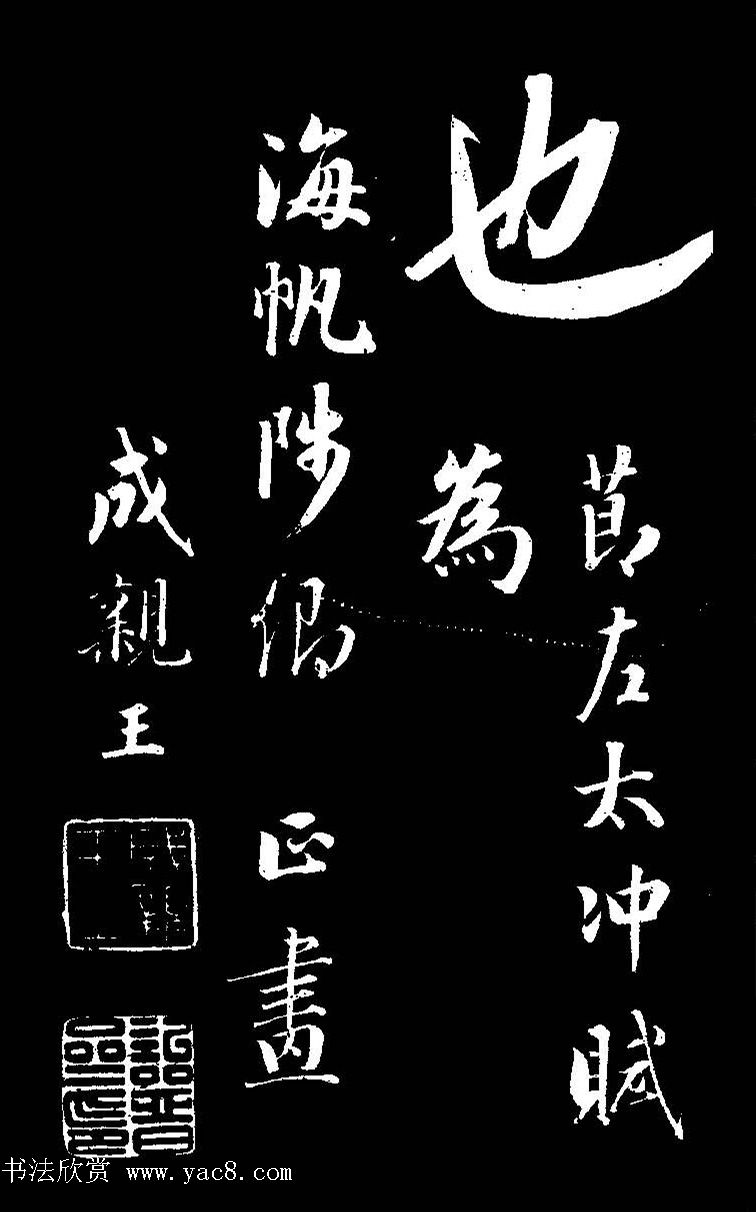 也
莭左太冲賦
為
海帆陟卿 正畫
成親王
书法欣赏 www.yac8.com